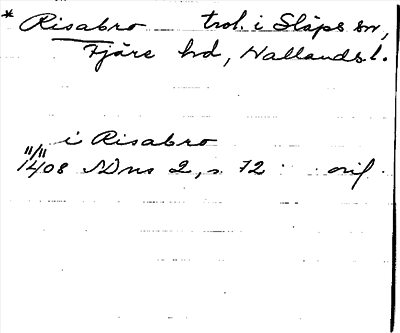 * Risabro trol. i Släps sn,
Fjäre hd, Hallands l.
i Risabro
11/11
1408 SDns 2, s. 72 orig.